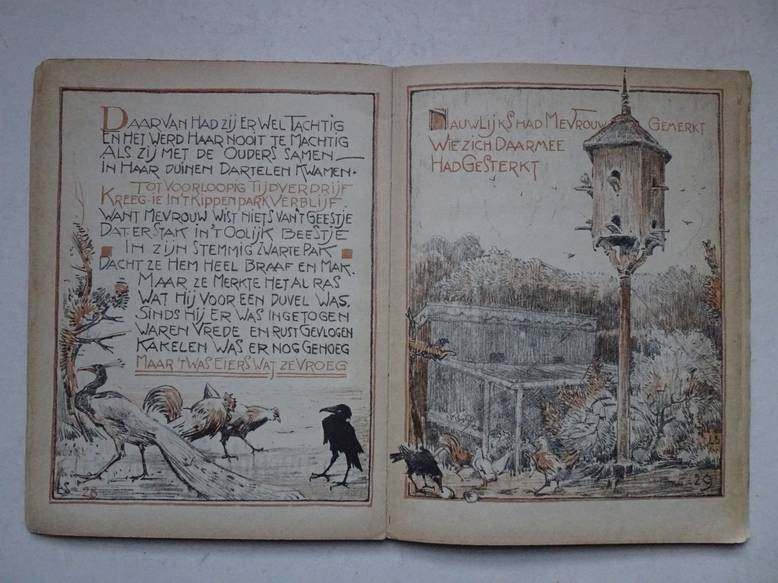 DAARVAN HAD ZIJ ER WEL TACHTIG
EN HET WERD HAAR NOOIT TE MACHTIG
ALS ZIJ MET DE OUDERS SAMEN
IN HAAR DUINEN DARTELEN KWAMEN.
TOT VOORLOOPIG TIJDVERDRIJF
KREEG-IE IN 'T KIPPENPARK VERBLIJF.
WANT MEVROUW WIST NIETS VAN 'T GEESTJE
DAT ER STAK IN 'T OOLIJK BEESTJE
IN ZIJN STEMMIG ZWARTE PAK
DACHT ZE HEM HEEL BRAAF EN MAK.
MAAR ZE MERKTE HET AL RAS
WAT HIJ VOOR EEN DUVEL WAS,
SINDS HIJ ER WAS INGETOGEN
WAREN VREDE EN RUST GEVLOGEN
KAKELEN WAS ER NOG GENOEG
MAAR 'T WAS EIERS WAT ZE VROEG
28
NAUWLIJKS HAD MEVROUW GEMERKT
WIE ZICH DAARMEE
HAD GESTERKT
29